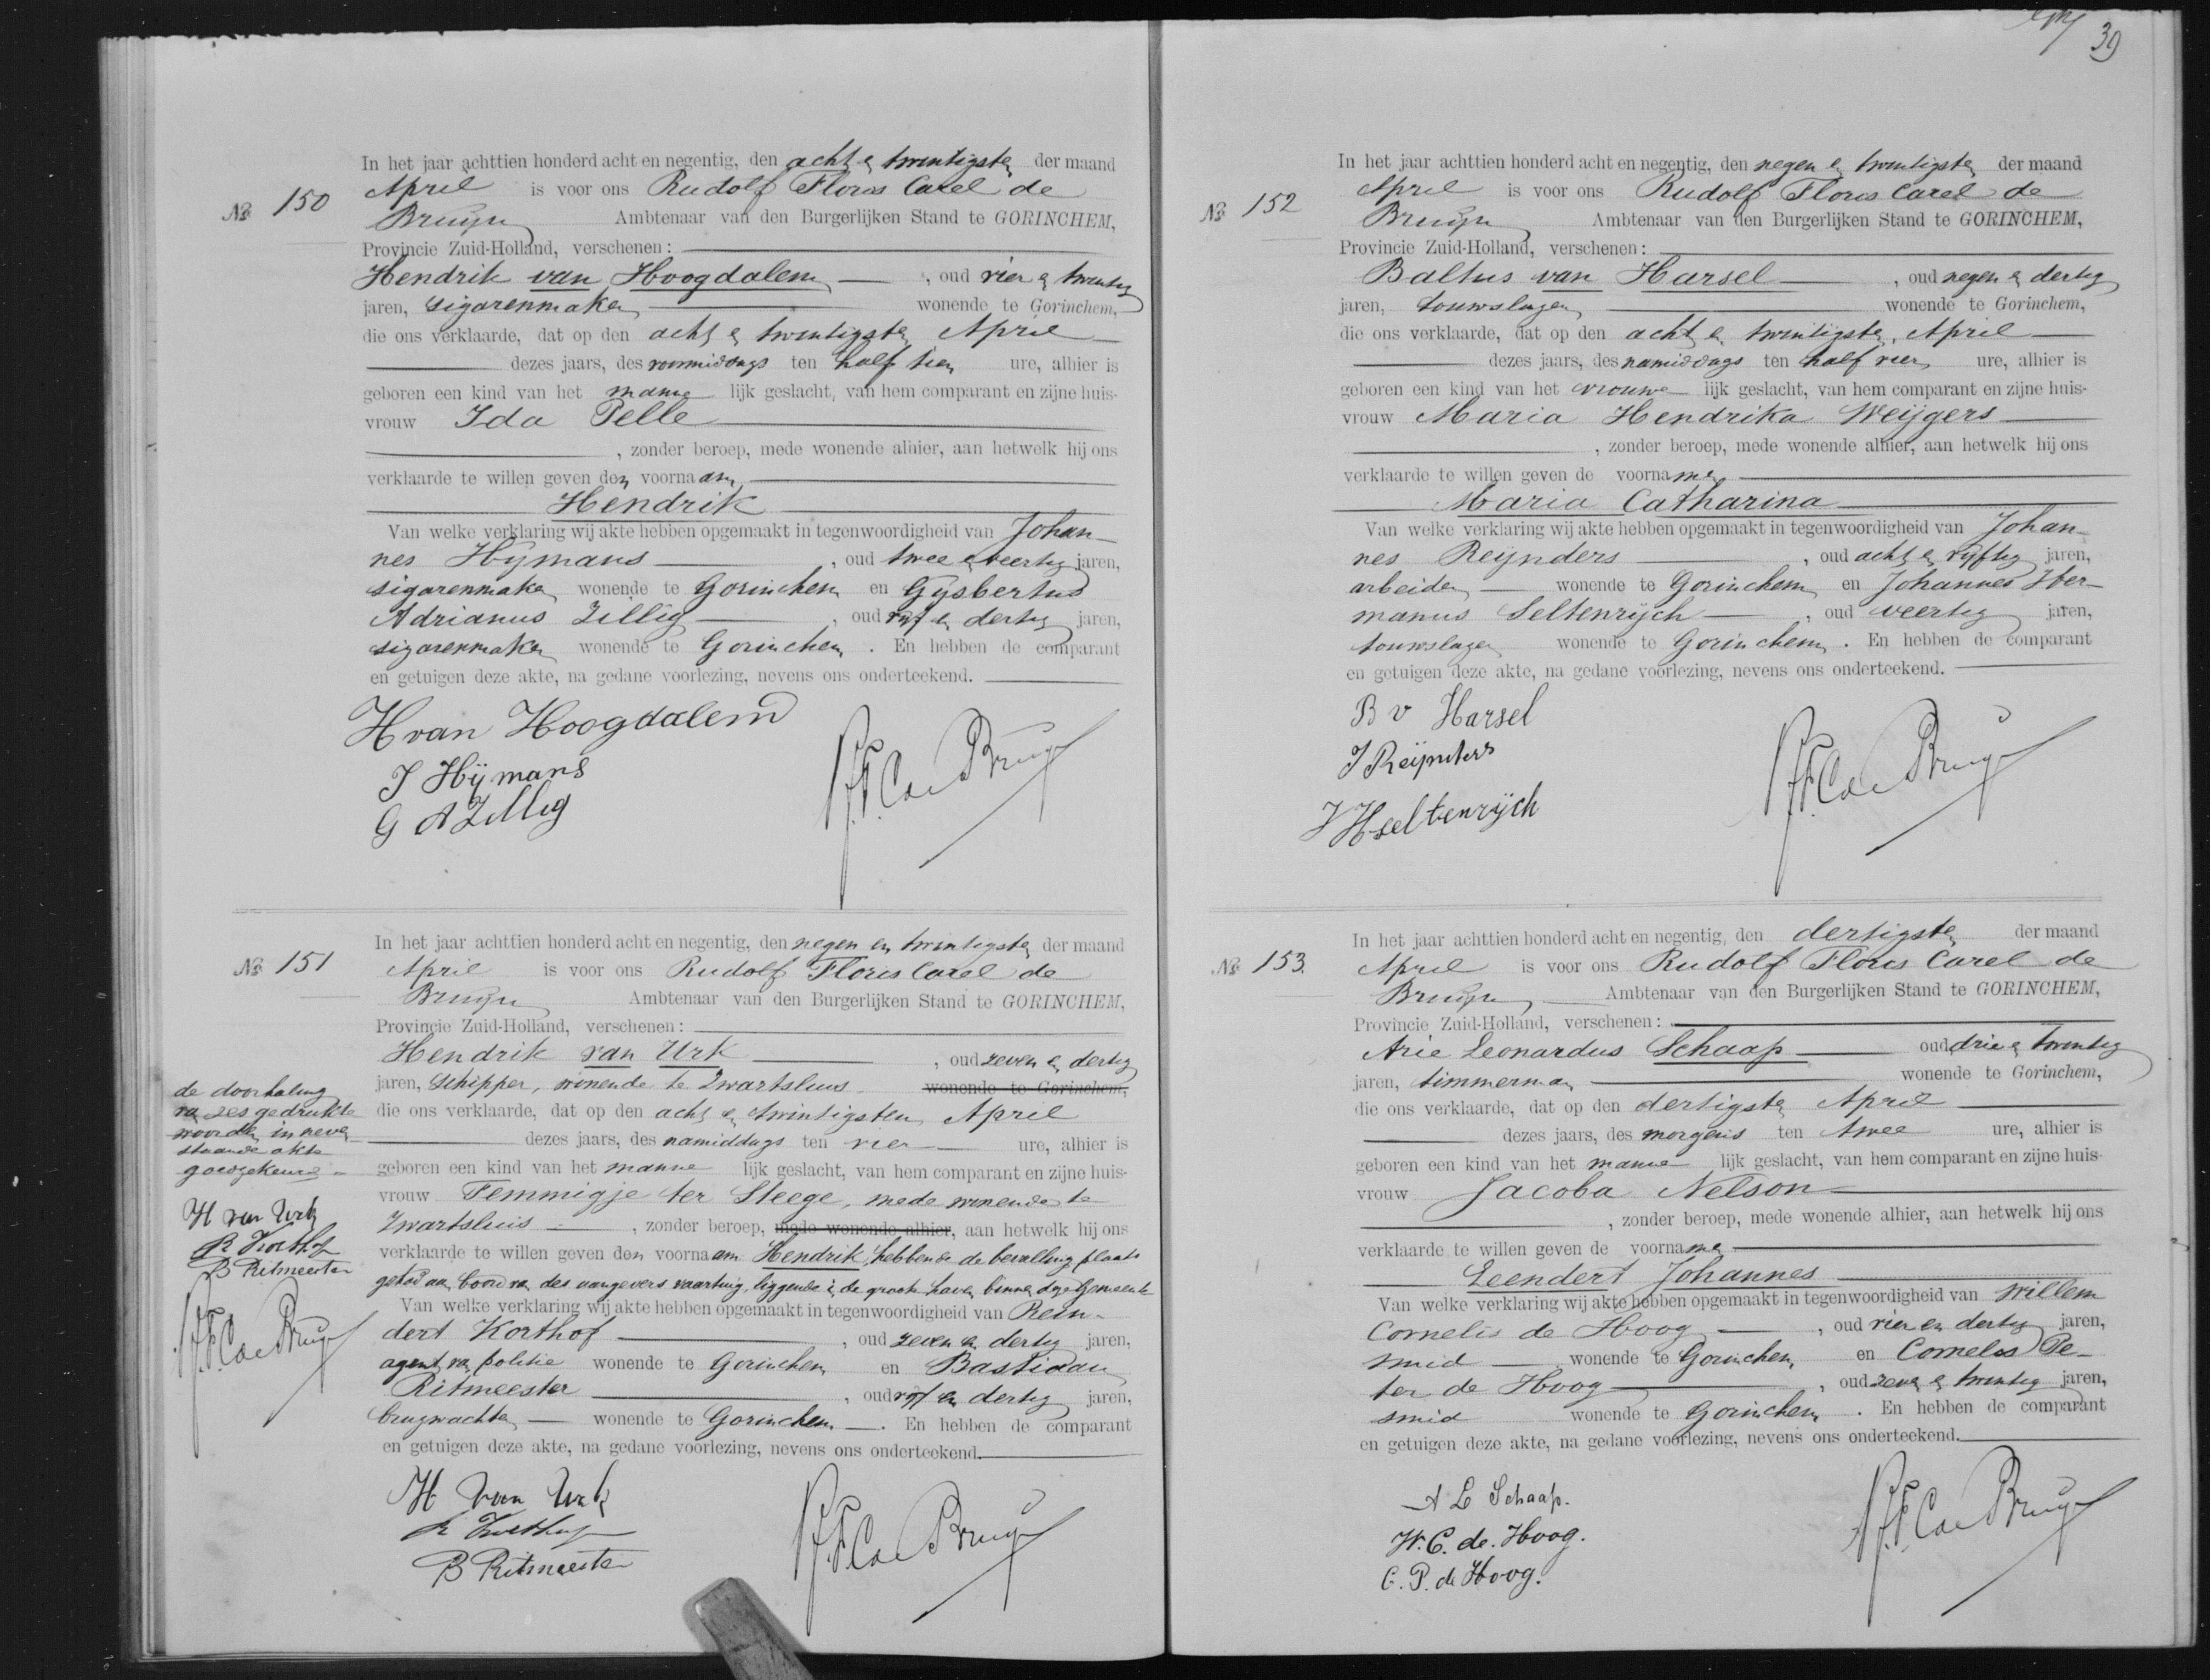 39
№ 150
In het jaar achttien honderd acht en negentig, den acht en twintigsten der maand
April is voor ons Rudolf Floris Carel de
Bruijn Ambtenaar van den Burgerlijken Stand te GORINCHEM,
Provincie Zuid-Holland, verschenen:
Hendrik van Hoogdalem, oud vier en twintig
jaren, sigarenmaker wonende te Gorinchem,
die ons verklaarde, dat op den acht en twintigsten April
dezes jaars, des voormiddags ten half tien ure, alhier is
geboren een kind van het manne lijk geslacht, van hem comparant en zijne huis-
vrouw Ida Pelle
, zonder beroep, mede wonende alhier, aan hetwelk hij ons
verklaarde te willen geven den voornaam
Hendrik
Van welke verklaring wij akte hebben opgemaakt in tegenwoordigheid van Johan-
nes Hijmans, oud twee en veertig jaren,
sigarenmaker wonende te Gorinchem en Gijsbertus
Adrianus Zillig, oud vijf en dertig jaren,
sigarenmaker wonende te Gorinchem. En hebben de comparant
en getuigen deze akte, na gedane voorlezing, nevens ons onderteekend.
H van Hoogdalem
J Hijmans
G A Zillig
RFC de Bruijn
№ 151
In het jaar achttien honderd acht en negentig, den negen en twintigsten der maand
April is voor ons Rudolf Floris Carel de
Bruijn Ambtenaar van den Burgerlijken Stand te GORINCHEM,
Provincie Zuid-Holland, verschenen:
Hendrik van Urk, oud zeven en dertig
jaren, schipper, wonende te Zwartsluis wonende te Gorinchem,
die ons verklaarde, dat op den acht en twintigsten April
dezes jaars, des namiddags ten vier ure, alhier is
geboren een kind van het manne lijk geslacht, van hem comparant en zijne huis-
vrouw Femmigje ter Steege, mede wonende te
Zwartsluis, zonder beroep, mede wonende alhier, aan hetwelk hij ons
verklaarde te willen geven den voornaam Hendrik, hebbende de bevalling plaats
gehad aan boord van des aangevers vaartuig, liggende in de groote haven binnen deze Gemeente
Van welke verklaring wij akte hebben opgemaakt in tegenwoordigheid van Rein-
dert Korthof, oud zeven en dertig jaren,
agent van politie wonende te Gorinchem en Bastiaan
Ritmeester, oud vijf en dertig jaren,
brugwachter wonende te Gorinchem. En hebben de comparant
en getuigen deze akte, na gedane voorlezing, nevens ons onderteekend.
H van Urk
R Korthof
B Ritmeester
RFC de Bruijn
de doorhaling
van zes gedrukte
woorden in neven
staande akte
goedgekeurd
H van Urk
R Korthof
B Ritmeester
RFC de Bruijn
№ 152
In het jaar achttien honderd acht en negentig, den negen en twintigsten der maand
April is voor ons Rudolf Floris Carel de
Bruijn Ambtenaar van den Burgerlijken Stand te GORINCHEM,
Provincie Zuid-Holland, verschenen:
Baltus van Harsel, oud negen en dertig
jaren, touwslager wonende te Gorinchem,
die ons verklaarde, dat op den acht en twintigsten April
dezes jaars, des namiddags ten half vier ure, alhier is
geboren een kind van het vrouwe lijk geslacht, van hem comparant en zijne huis-
vrouw Maria Hendrika Weijgers
, zonder beroep, mede wonende alhier, aan hetwelk hij ons
verklaarde te willen geven de voornamen
Maria Catharina
Van welke verklaring wij akte hebben opgemaakt in tegenwoordigheid van Johan-
nes Reijnders, oud acht en vijftig jaren,
arbeider wonende te Gorinchem en Johannes Her-
manus Seltenrijch, oud veertig jaren,
touwslager wonende te Gorinchem. En hebben de comparant
en getuigen deze akte, na gedane voorlezing, nevens ons onderteekend.
B v Harsel
J Reijnders
J H Seltenrijch
RFC de Bruijn
№ 153.
In het jaar achttien honderd acht en negentig, den dertigsten der maand
April is voor ons Rudolf Floris Carel de
Bruijn Ambtenaar van den Burgerlijken Stand te GORINCHEM,
Provincie Zuid-Holland, verschenen:
Arie Leonardus Schaap oud drie en twintig
jaren, timmerman wonende te Gorinchem,
die ons verklaarde, dat op den dertigsten April
dezes jaars, des morgens ten twee ure, alhier is
geboren een kind van het manne lijk geslacht, van hem comparant en zijne huis-
vrouw Jacoba Nelson
, zonder beroep, mede wonende alhier, aan hetwelk hij ons
verklaarde te willen geven de voornamen
Leendert Johannes
Van welke verklaring wij akte hebben opgemaakt in tegenwoordigheid van Willem
Cornelis de Hoog, oud vier en dertig jaren,
smid wonende te Gorinchem en Cornelis Pe-
ter de Hoog, oud zeven en twintig jaren,
smid wonende te Gorinchem. En hebben de comparant
en getuigen deze akte, na gedane voorlezing, nevens ons onderteekend.
A L Schaap.
W. C. de Hoog.
C. P. de Hoog.
RFC de Bruijn